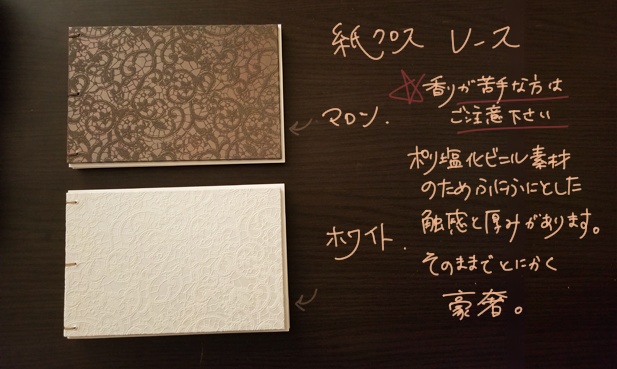 紙クロス レース
☆香りが苦手な方は
ご注意下さい
マロン.
ポリ塩化ビニル素材
のためふにふにとした
触感と厚みがあります。
ホワイト.
そのままでとにかく
豪奢。